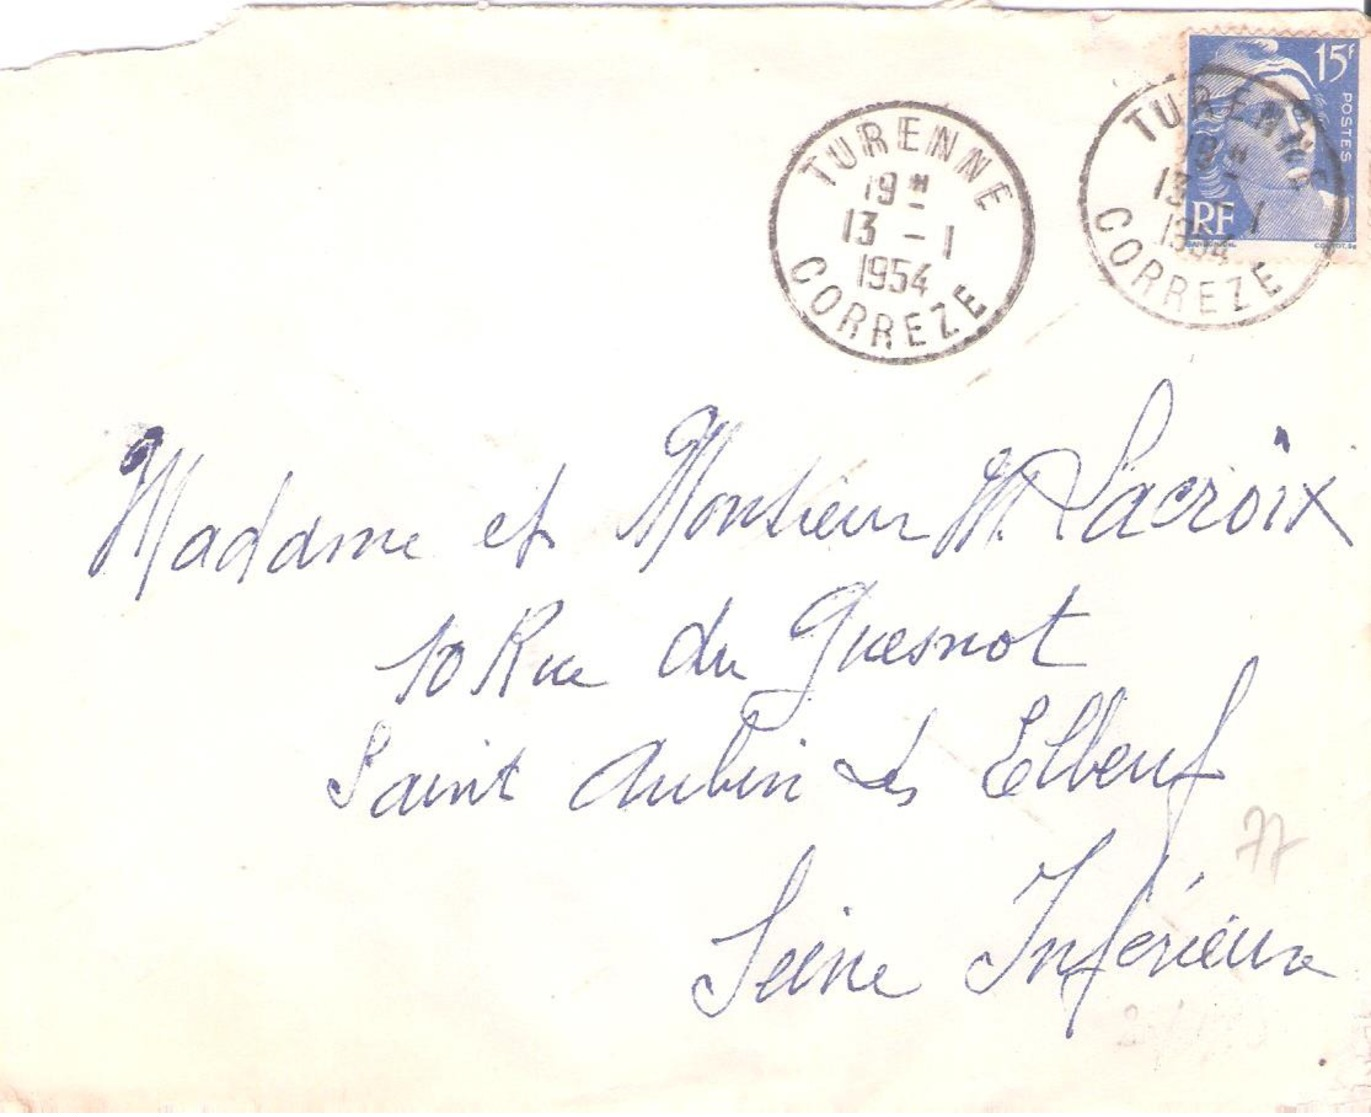 15F
POSTES
RF
TURENNE
19H
13 - 1
1954
CORREZE
TURENNE
19H
13 - 1
1954
CORREZE
Madame et Monsieur M. Lacroix
10 Rue du Quesnot
Saint Aubin les Elbeuf
77
Seine Inférieure